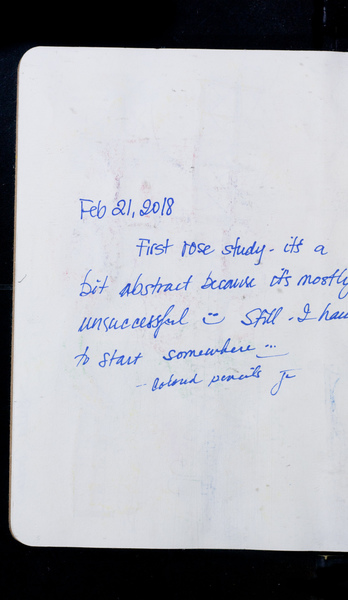 Feb 21, 2018
First rose study - it's a
bit abstract because it's mostly
unsuccessful Still - I hav
to start somewhere...
- Colored pencils